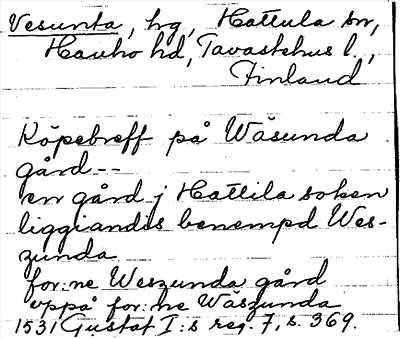 Vesunta, hg, Hattula sn,
Hauho hd, Tavastehus l.,
Finland
Köpebreff på Wäsunda
gård--
en gård j Hattila soken
liggiandis benempd Wes-
zunda
for:ne Weszunda gård
vppå for:ne Wäszunda
1531 Gustaf I:s reg. 7, s. 369.